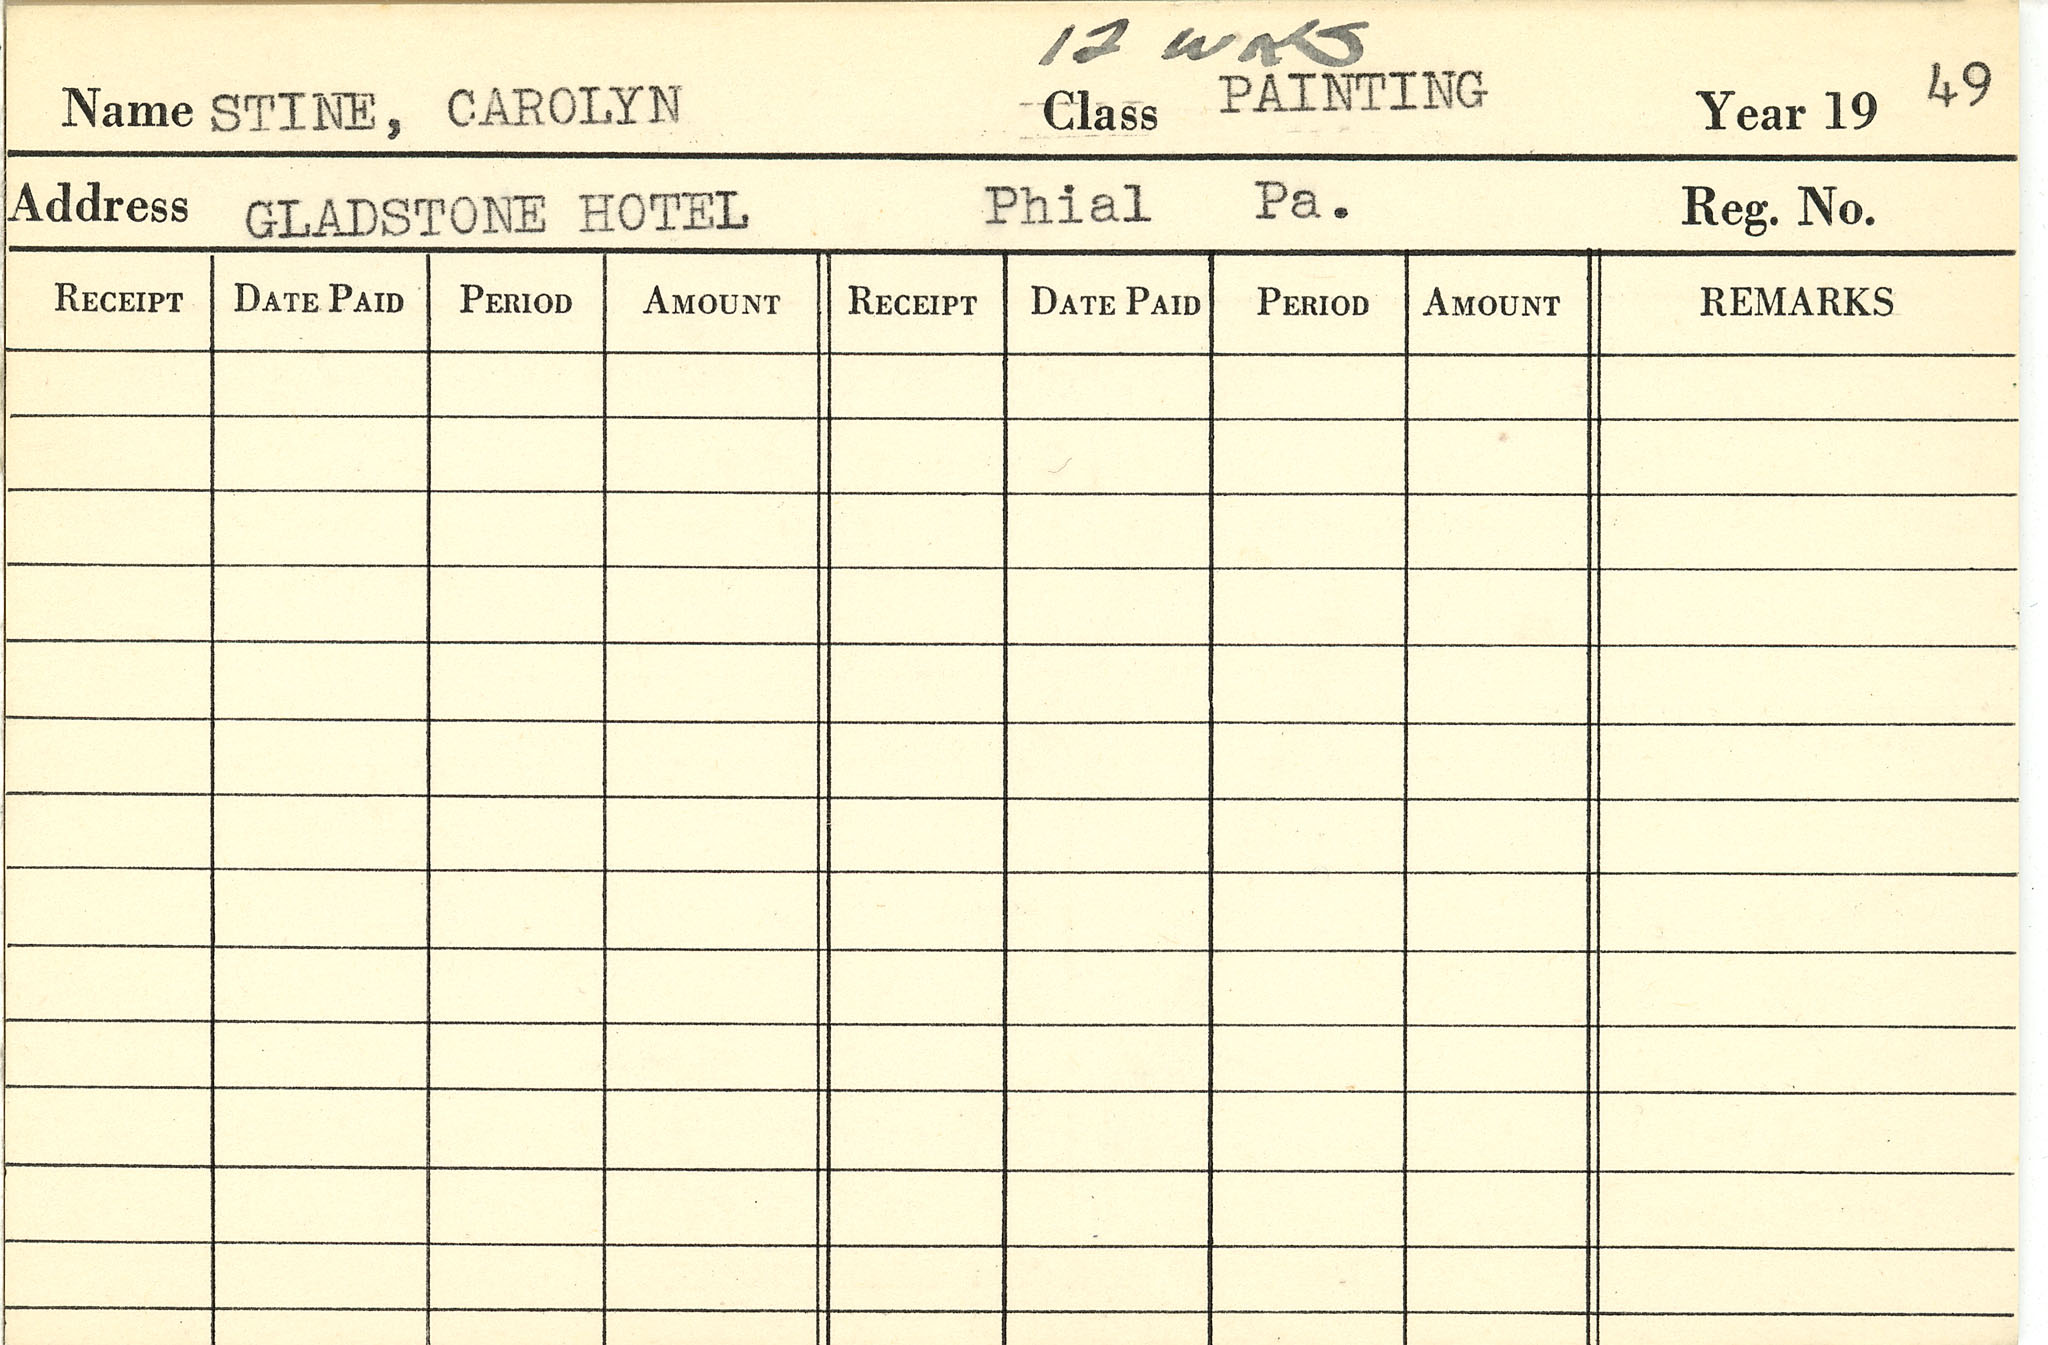 12 wks
Name STINE, CAROLYN Class PAINTING Year 19 49
Address GLADSTONE HOTEL Phial Pa. Reg. No.
RECEIPT DATE PAID PERIOD AMOUNT RECEIPT DATE PAID PERIOD AMOUNT REMARKS